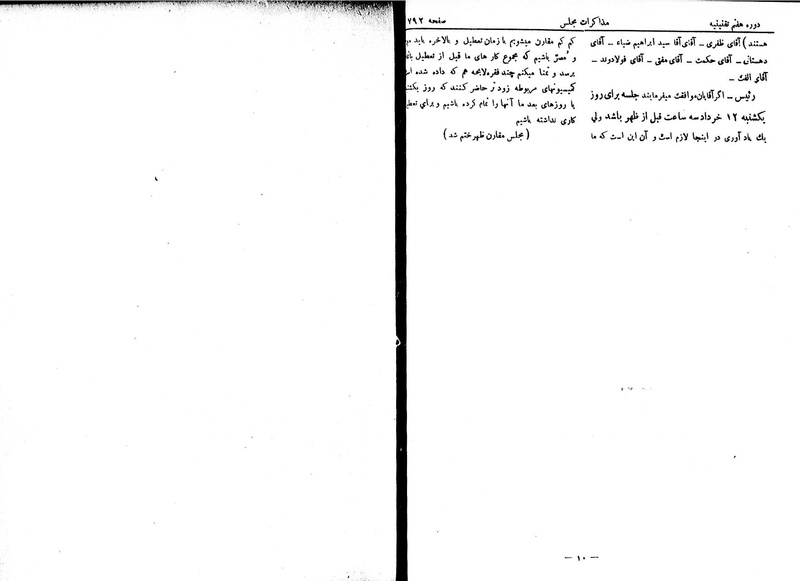 دوره هفتم تقنینیه
مذاکرات مجلس
صفحه ۷۹۲
هستند) آقای ظفری ـ آقای آقا سید ابراهیم ضیاء ـ آقای
دهستانی ـ آقای حکمت ـ آقای مفتی ـ آقای فولادوند ـ
آقای الفت ـ
رئیس ـ اگر آقایان موافقت میفرمایند جلسه برای روز
یکشنبه ۱۲ خرداد سه ساعت قبل از ظهر باشد ولی
یك یاد آوری در اینجا لازم است و آن این است که ما
کم کم مقارن میشویم با زمان تعطیل و بالاخره باید
و مصرّ باشیم که مجموع کار های ما قبل از تعطیل
برسد و تمنا میکنم چند فقره لایحه هم که داده شده
کمیسیونهای مربوطه زود تر حاضر کنند که روز
یا روزهای بعد ما آنها را تمام کرده باشیم و برای
کاری نداشته باشیم
(مجلس مقارن ظهر ختم شد)
— ۱۰ —